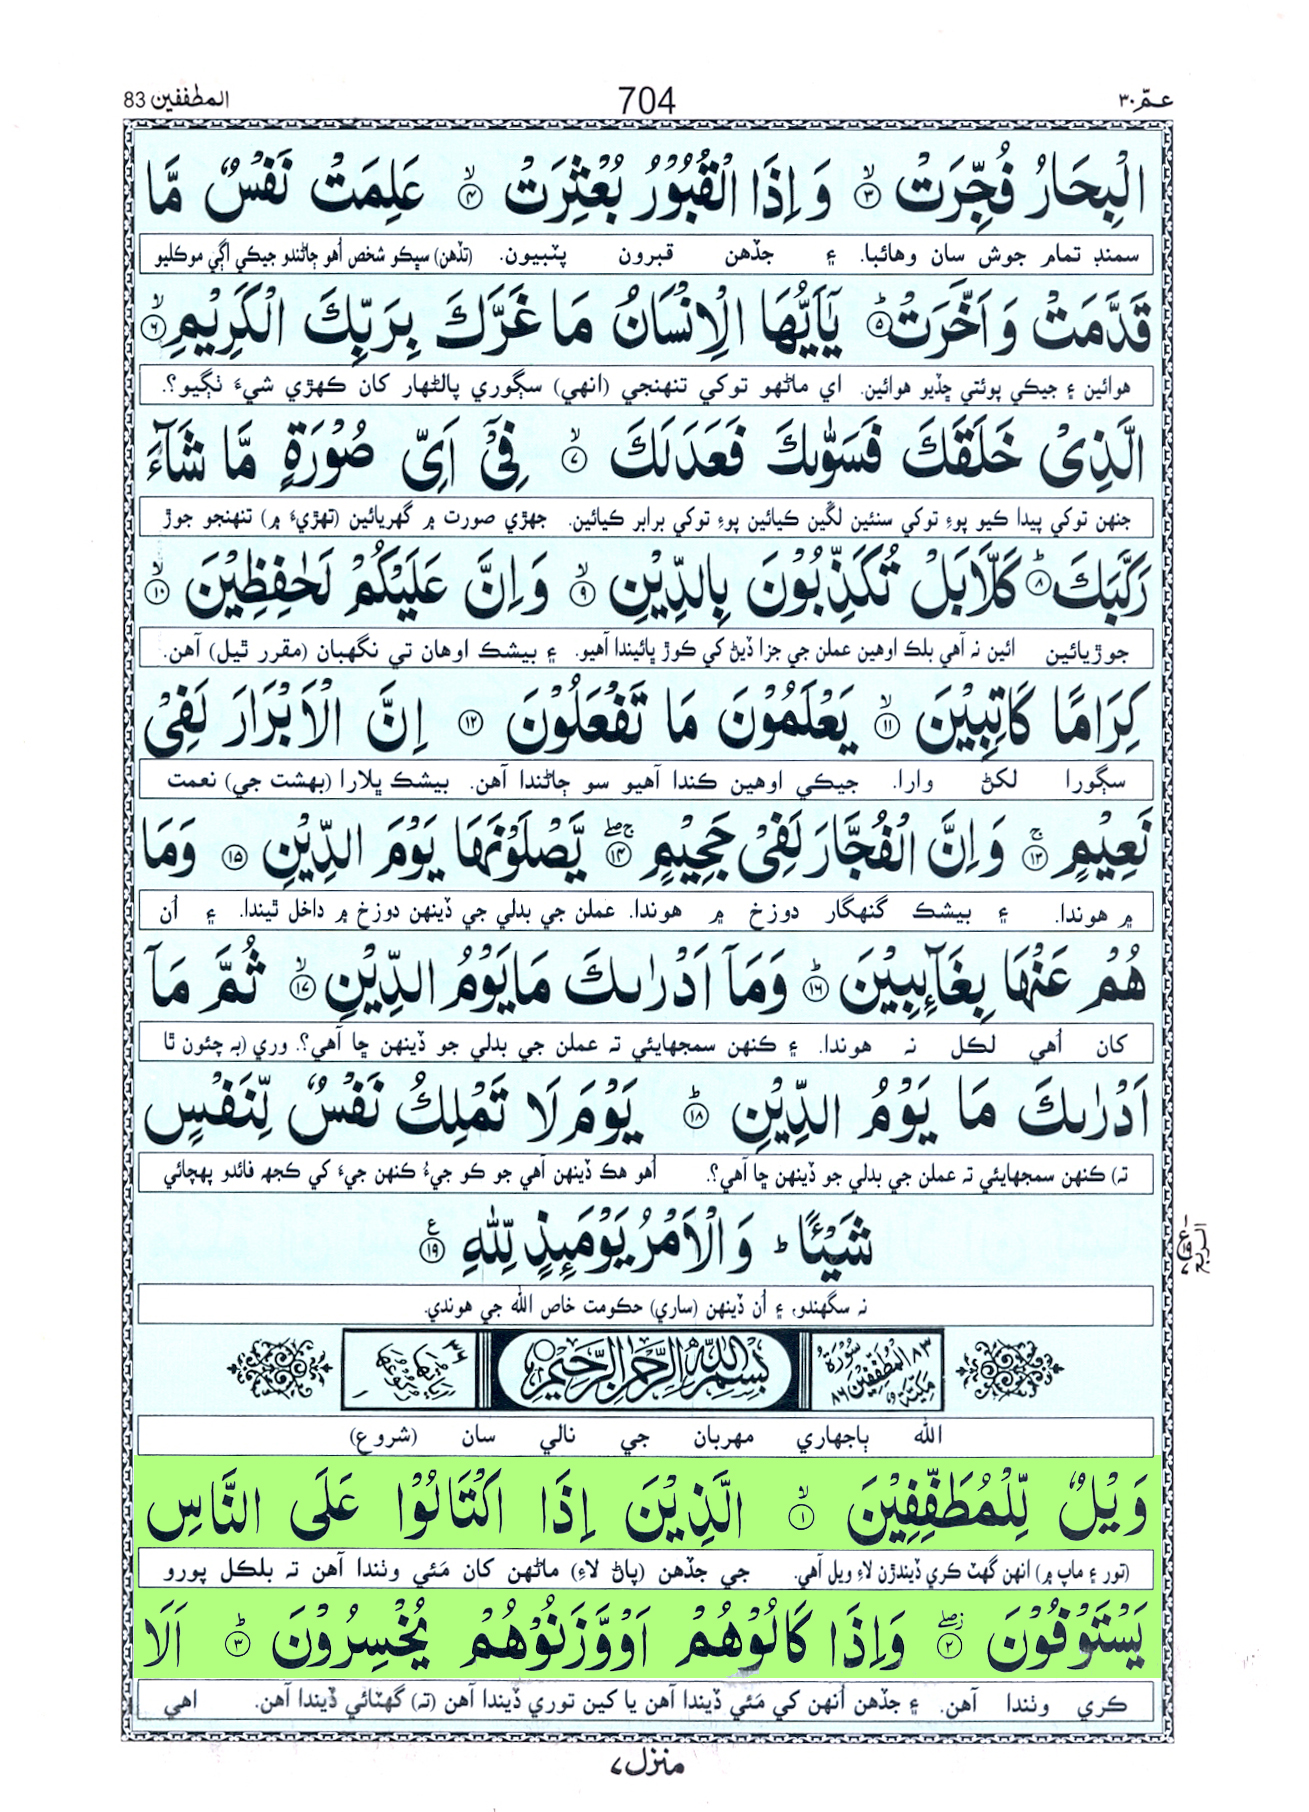 المطففين 83
704
عـمّ ٣٠
الْبِحَارُ فُجِّرَتْ ۙ﴿٣﴾ وَ اِذَا الْقُبُوْرُ بُعْثِرَتْ ۙ﴿٤﴾ عَلِمَتْ نَفْسٌ مَّا
سمنڊ تمام جوش سان وهائبا. ۽ جڏهن قبرون پٽبيون. (تڏهن) سڀڪو شخص اُهو ڄاڻندو جيڪي اڳي موڪليو
قَدَّمَتْ وَ اَخَّرَتْ ؕ﴿٥﴾ يٰۤاَيُّهَا الْاِنْسَانُ مَا غَرَّكَ بِرَبِّكَ الْكَرِيْمِ ۙ﴿٦﴾
هوائين ۽ جيڪي پوئتي ڇڏيو هوائين. اي ماڻهو توکي تنهنجي (انهي) سڳوري پالڻهار کان ڪهڙي شيءَ ٺڳيو؟.
الَّذِيْ خَلَقَكَ فَسَوّٰىكَ فَعَدَلَكَ ۙ﴿٧﴾ فِيْۤ اَيِّ صُوْرَةٍ مَّا شَآءَ
جنهن توکي پيدا ڪيو پوءِ توکي سنئين لڱين ڪيائين پوءِ توکي برابر ڪيائين. جهڙي صورت ۾ گهريائين (تهڙيءَ ۾) تنهنجو جوڙ
رَكَّبَكَ ؕ﴿٨﴾ كَلَّا بَلْ تُكَذِّبُوْنَ بِالدِّيْنِ ۙ﴿٩﴾ وَ اِنَّ عَلَيْكُمْ لَحٰفِظِيْنَ ۙ﴿١٠﴾
جوڙيائين ائين نہ آهي بلڪ اوهين عملن جي جزا ڏيڻ کي ڪوڙ ڀائيندا آهيو. ۽ بيشڪ اوهان تي نگهبان (مقرر ٿيل) آهن.
كِرَامًا كَاتِبِيْنَ ۙ﴿١١﴾ يَعْلَمُوْنَ مَا تَفْعَلُوْنَ ﴿١٢﴾ اِنَّ الْاَبْرَارَ لَفِيْ
سڳورا لکڻ وارا. جيڪي اوهين ڪندا آهيو سو ڄاڻندا آهن. بيشڪ ڀلارا (بهشت جي) نعمت
نَعِيْمٍ ۚ﴿١٣﴾ وَ اِنَّ الْفُجَّارَ لَفِيْ جَحِيْمٍ ۚۖ﴿١٤﴾ يَّصْلَوْنَهَا يَوْمَ الدِّيْنِ ﴿١٥﴾ وَمَا
۾ هوندا. ۽ بيشڪ گنهگار دوزخ ۾ هوندا. عملن جي بدلي جي ڏينهن دوزخ ۾ داخل ٿيندا. ۽ اُن
هُمْ عَنْهَا بِغَآئِبِيْنَ ؕ﴿١٦﴾ وَمَاۤ اَدْرٰىكَ مَا يَوْمُ الدِّيْنِ ۙ﴿١٧﴾ ثُمَّ مَاۤ
کان اُهي لڪل نہ هوندا. ۽ ڪنهن سمجهايئي تہ عملن جي بدلي جو ڏينهن ڇا آهي؟. وري (بہ چئون ٿا
اَدْرٰىكَ مَا يَوْمُ الدِّيْنِ ؕ﴿١٨﴾ يَوْمَ لَا تَمْلِكُ نَفْسٌ لِّنَفْسٍ
تہ) ڪنهن سمجهايئي تہ عملن جي بدلي جو ڏينهن ڇا آهي؟. اُهو هڪ ڏينهن آهي جو ڪو جيءُ ڪنهن جيءَ کي ڪجهہ فائدو پهچائي
شَيْـًٔا ؕ وَ الْاَمْرُ يَوْمَئِذٍ لِّلّٰهِ ﴿١٩﴾ ع
نہ سگهندو، ۽ اُن ڏينهن (ساري) حڪومت خاص الله جي هوندي.
٨٣ سُوْرَةُ الْمُطَفِّفِيْنَ مَكِّيَّةٌ ٨٦
بِسْمِ اللّٰهِ الرَّحْمٰنِ الرَّحِيْمِ
اٰيَاتُهَا ٣٦ رُكُوْعُهَا ١
الله ٻاجهاري مهربان جي نالي سان (شروع)
وَيْلٌ لِّلْمُطَفِّفِيْنَ ۙ﴿١﴾ الَّذِيْنَ اِذَا اكْتَالُوْا عَلَى النَّاسِ
(تور ۽ ماپ ۾) انهن گهٽ ڪري ڏيندڙن لاءِ ويل آهي. جي جڏهن (پاڻ لاءِ) ماڻهن کان مَئي وٺندا آهن تہ بلڪل پورو
يَسْتَوْفُوْنَ ۖ﴿٢﴾ وَ اِذَا كَالُوْهُمْ اَوْ وَّزَنُوْهُمْ يُخْسِرُوْنَ ؕ﴿٣﴾ اَلَا
ڪري وٺندا آهن. ۽ جڏهن اُنهن کي مَئي ڏيندا آهن يا کين توري ڏيندا آهن (تہ) گهٽائي ڏيندا آهن. اهي
منزل ٧